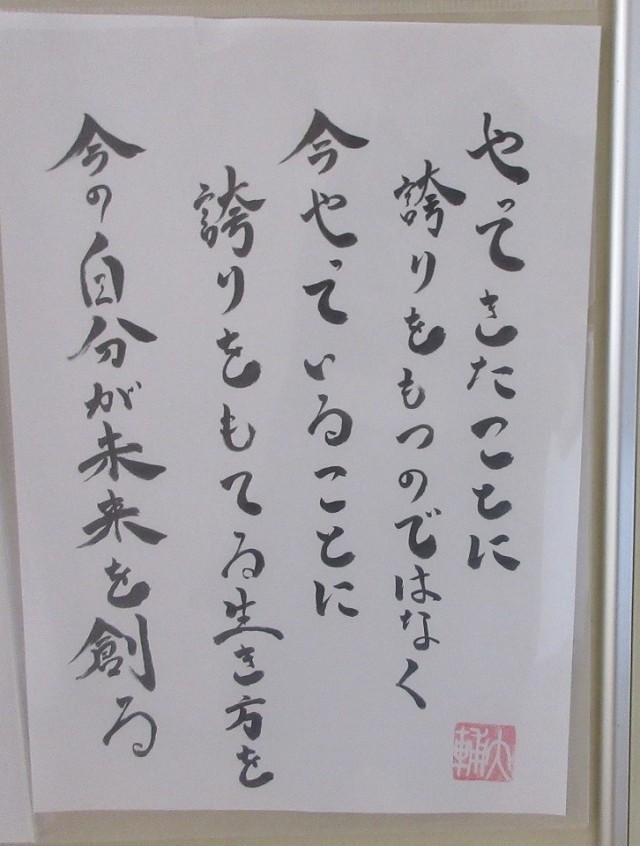 やってきたことに
誇りをもつのではなく
今やっていることに
誇りをもてる生き方を
今の自分が未来を創る
大輔